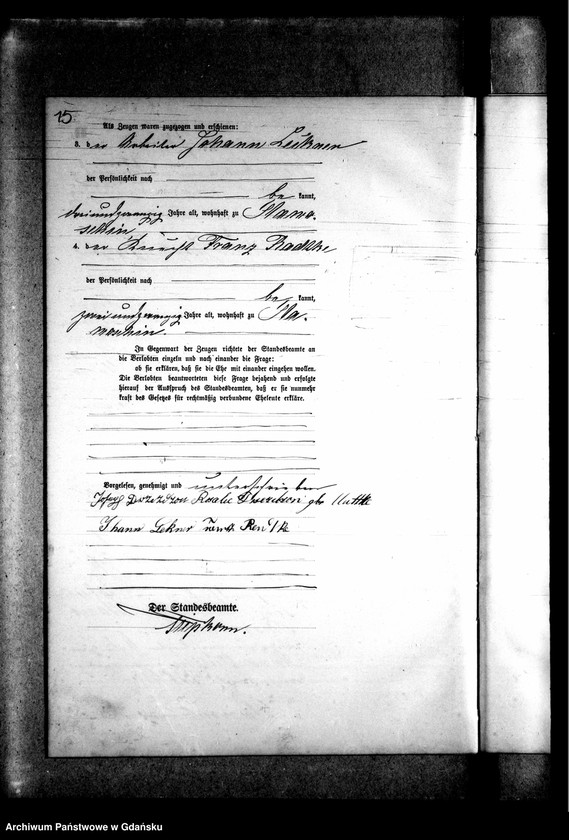 15
Als Zeugen waren zugezogen und erschienen:
3. der Arbeiter Johann Leckner
der Persönlichkeit nach
be kannt,
dreiundzwanzig Jahre alt, wohnhaft zu Slawo-
schin
4. der Knecht Franz Radtke
der Persönlichkeit nach
be kannt,
zweiundzwanzig Jahre alt, wohnhaft zu Sla-
woschin.
In Gegenwart der Zeugen richtete der Standesbeamte an
die Verlobten einzeln und nach einander die Frage:
ob sie erklären, daß sie die Ehe mit einander eingehen wollen.
Die Verlobten beantworteten diese Frage bejahend und erfolgte
hierauf der Ausspruch des Standesbeamten, daß er sie nunmehr
kraft des Gesetzes für rechtmäßig verbundene Eheleute erkläre.
Vorgelesen, genehmigt und unterschrieben
Josef Rosalie gbr
Lekner
Der Standesbeamte.
Archiwum Państwowe w Gdańsku